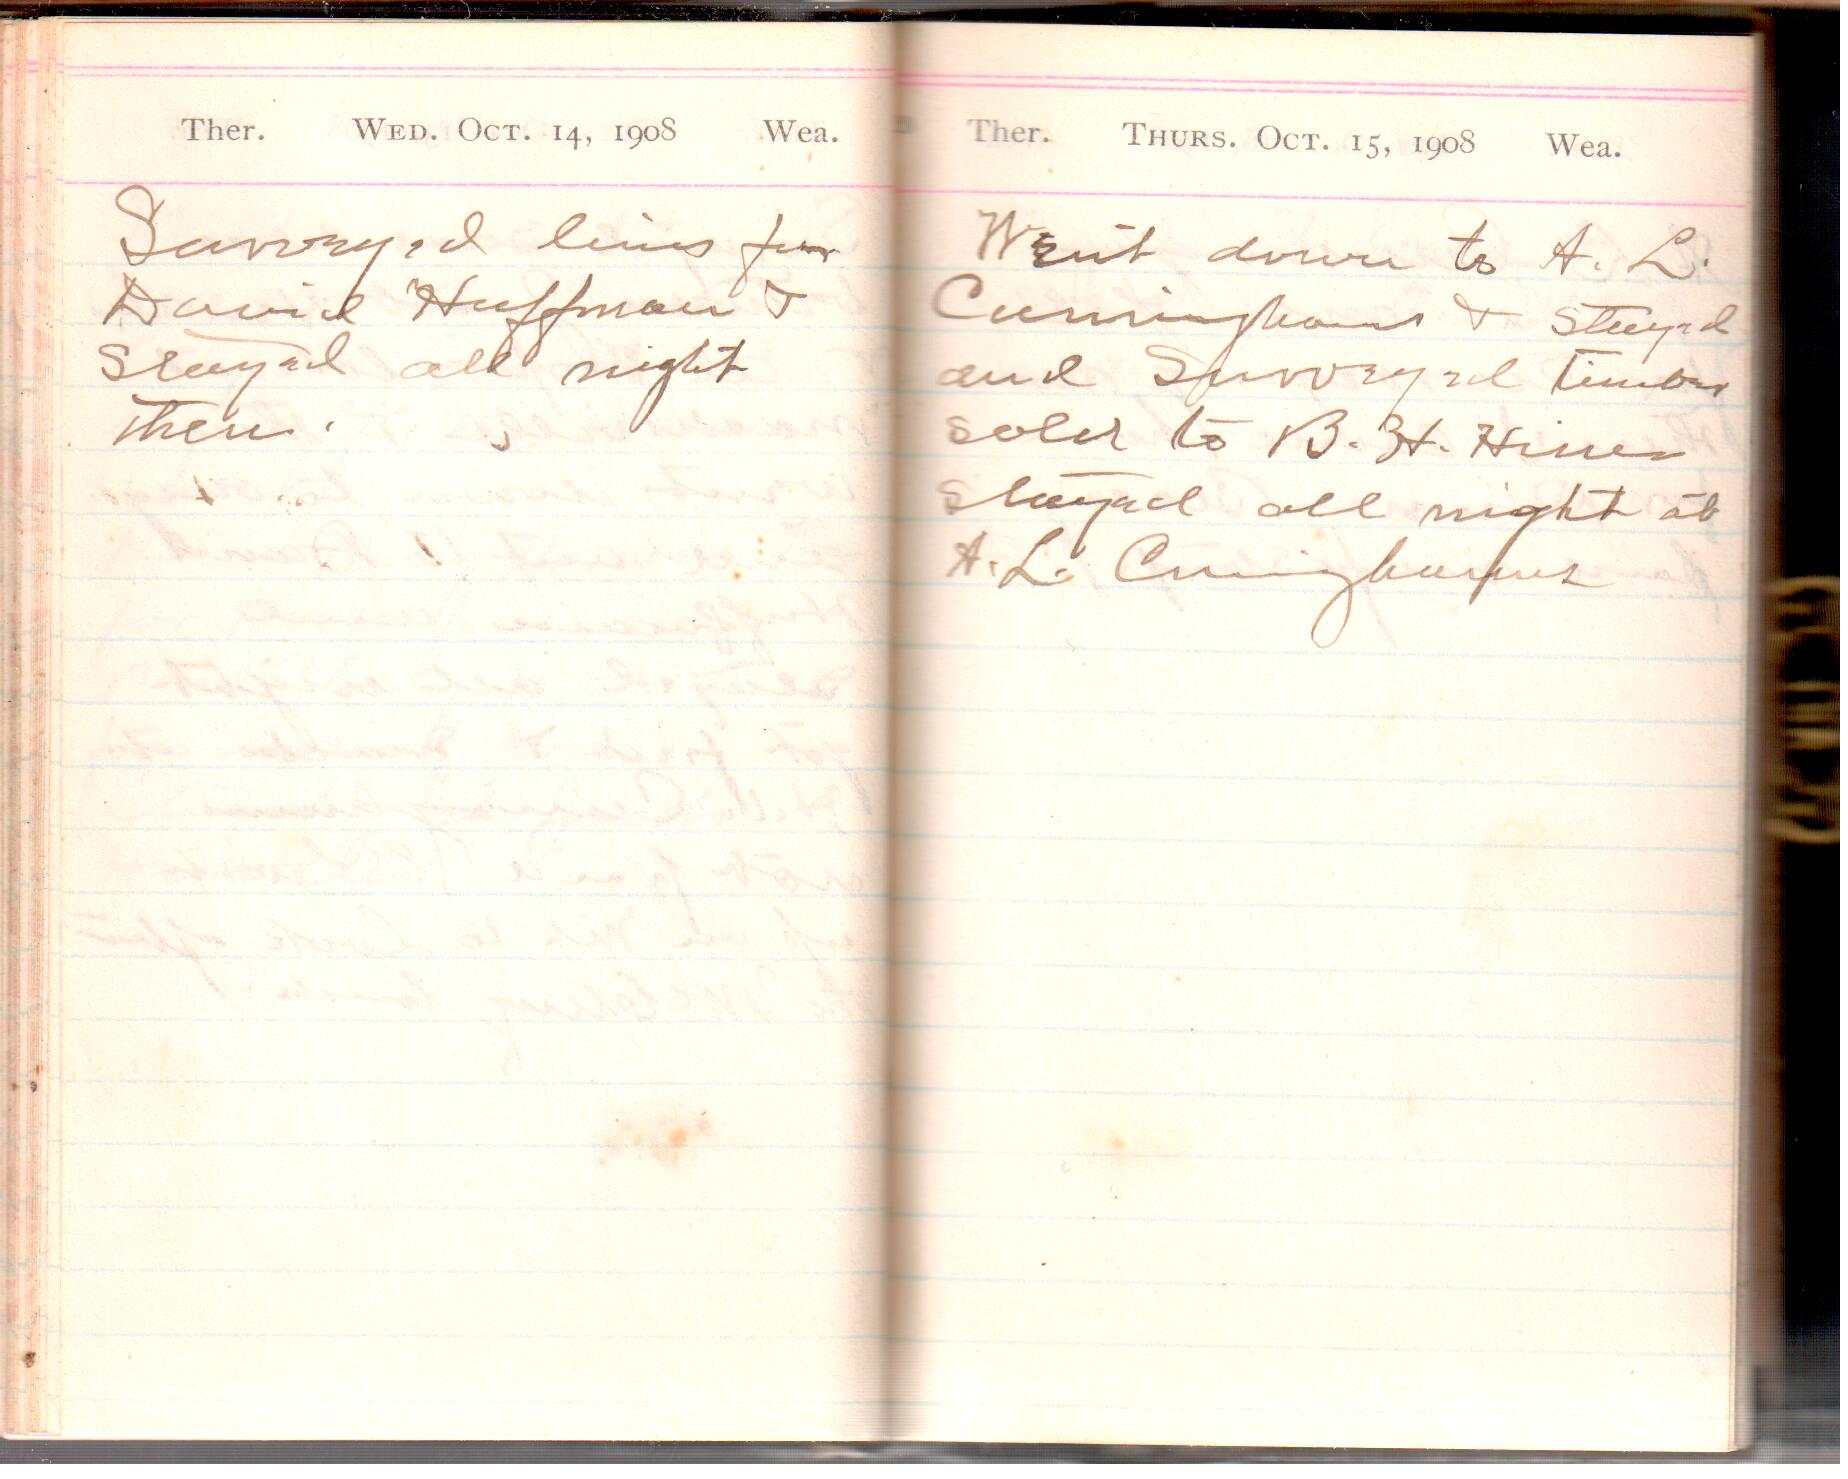 Ther. WED. OCT. 14, 1908 Wea.
Surveyed lines for
David Huffman &
stayed all night
there.
Ther. THURS. OCT. 15, 1908 Wea.
Went down to A. L.
Cunninghams & stayed
and Surveyed timber
sold to B. H. Hiner
stayed all night at
A. L. Cuninghames